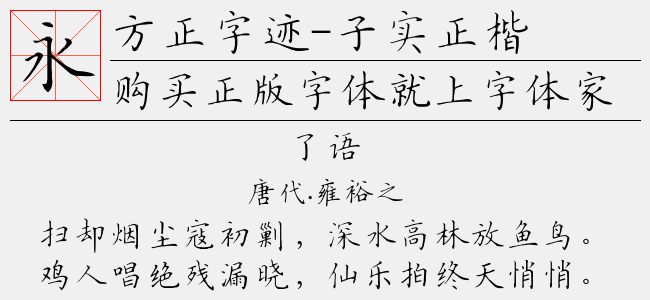 永
方正字迹-子实正楷
购买正版字体就上字体家
了语
唐代.雍裕之
扫却烟尘寇初剿，深水高林放鱼鸟。
鸡人唱绝残漏晓，仙乐拍终天悄悄。